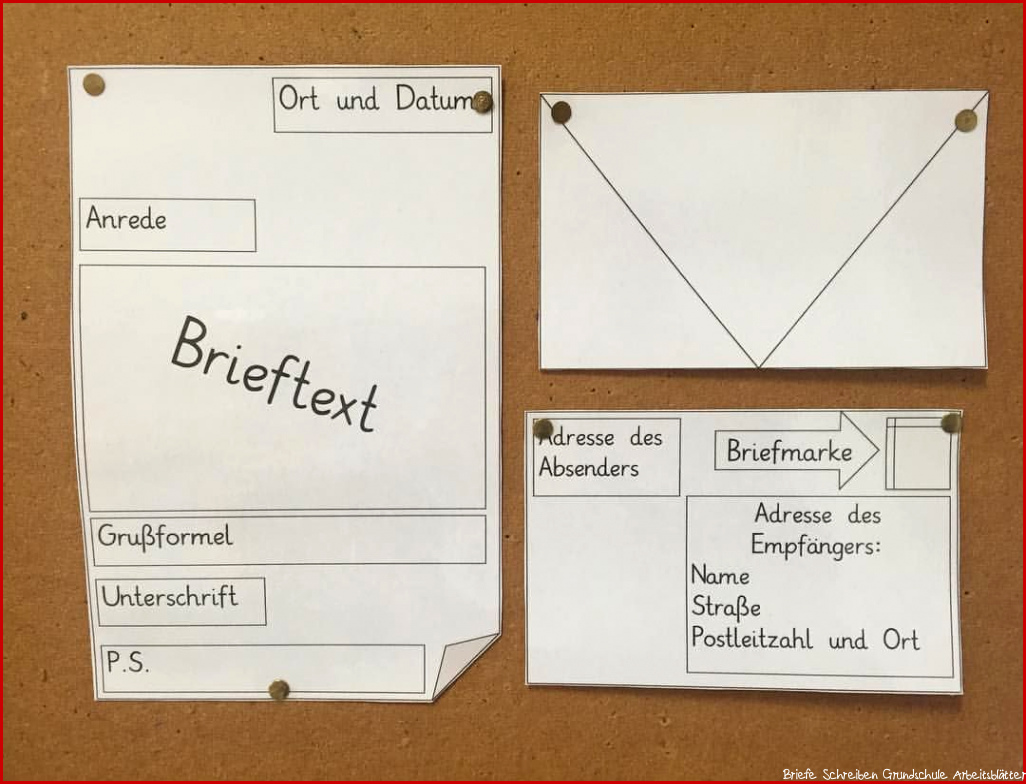 Ort und Datum
Anrede
Brieftext
Grußformel
Unterschrift
P.S.
Adresse des
Absenders
Briefmarke
Adresse des
Empfängers:
Name
Straße
Postleitzahl und Ort
Briefe Schreiben Grundschule Arbeitsblätter